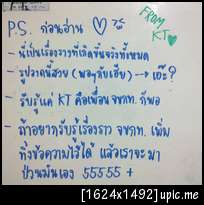 P.S. ก่อนอ่าน ♡
FROM KT ♡
- นี่เป็นเรื่องราวที่เกิดขึ้นจริงทั้งหมด
- รูปวาดนี้สวย (พอๆกับเฮีย) → เอ๊ะ?
- รับรู้แค่ KT คือเพื่อน จขกท. ก็พอ
- ถ้าอยากรับรู้เรื่องราว จขกท. เพิ่ม
ทิ้งข้อความไว้ได้ แล้วเราจะมา
ป่วนมันเอง 55555 +
[1624x1492] upic.me